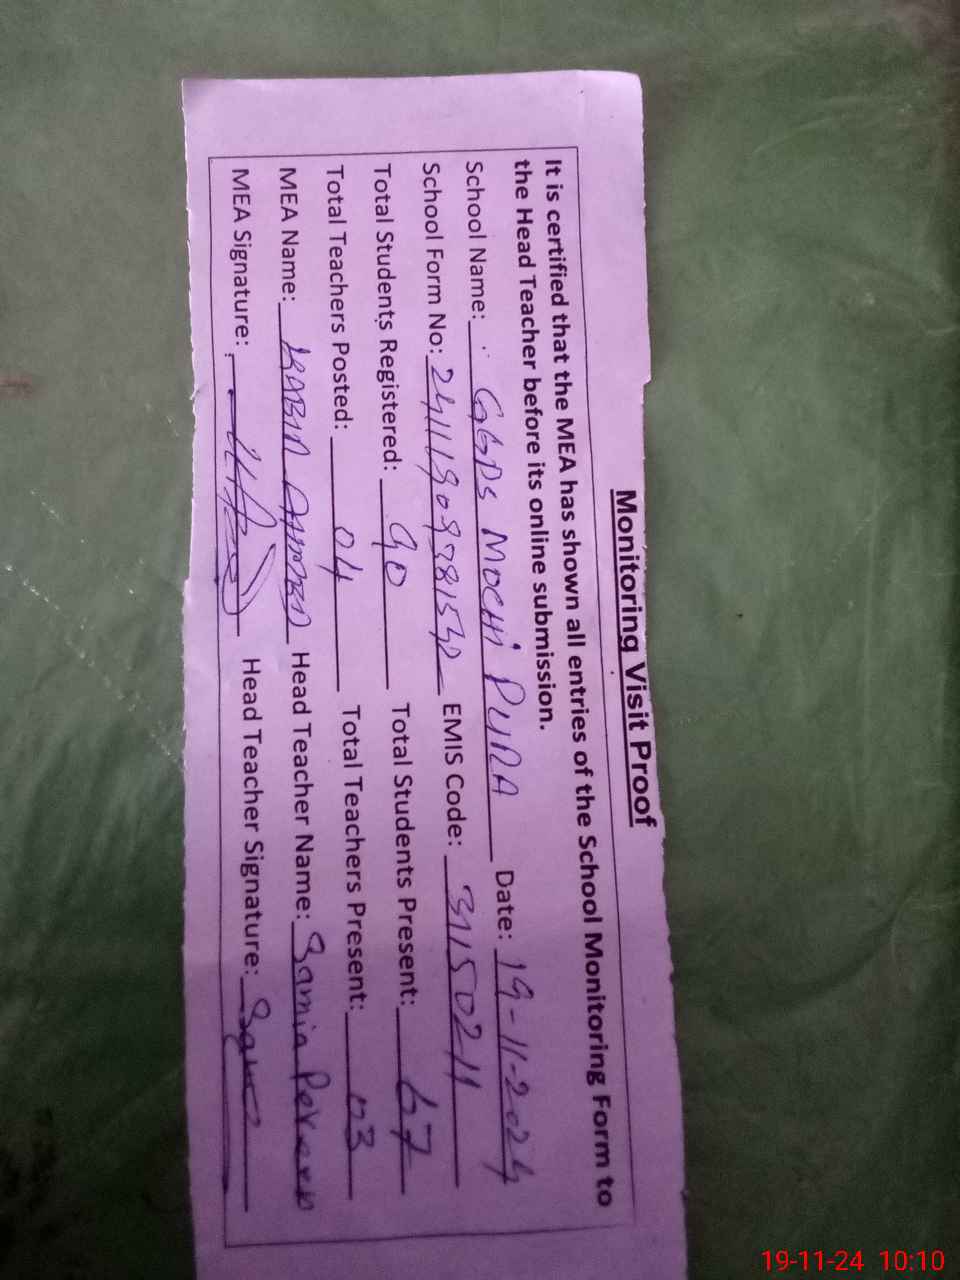 Monitoring Visit Proof
It is certified that the MEA has shown all entries of the School Monitoring Form to
the Head Teacher before its online submission.
School Name: GGPS MOCHI PURA Date: 19-11-2024
School Form No: EMIS Code: 31150211
Total Students Registered: 90 Total Students Present: 67
Total Teachers Posted: 04 Total Teachers Present: 03
MEA Name: Head Teacher Name: Samia Perveen
MEA Signature: Head Teacher Signature:
19-11-24 10:10